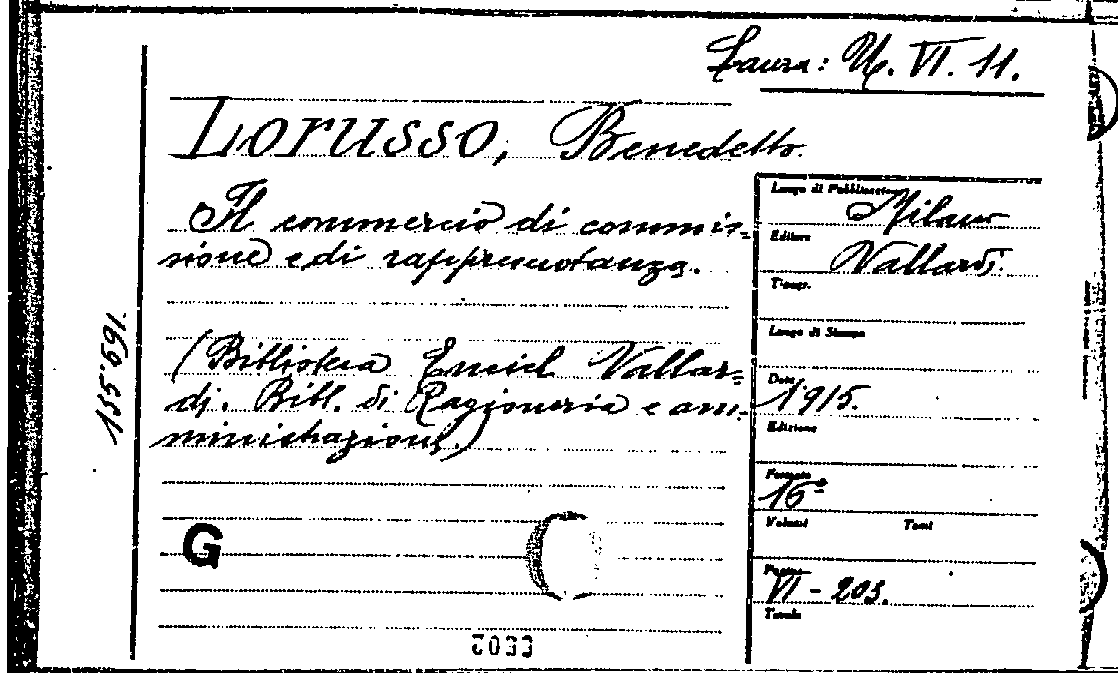 Laura: U. VI. 11.
Lorusso, Benedetto.
Il commercio di commis=
sione e di rappresentanza.
(Biblioteca Encicl. Vallar=
di. Bibl. di Ragioneria e am=
ministrazione.)
155'691.
G
2033
Luogo di Pubblicazione
Milano
Editore
Vallardi.
Tipogr.
Luogo di Stampa
Data
1915.
Edizione
Formato
16º
Volumi Tomi
Pagine
VI - 203.
Tavole